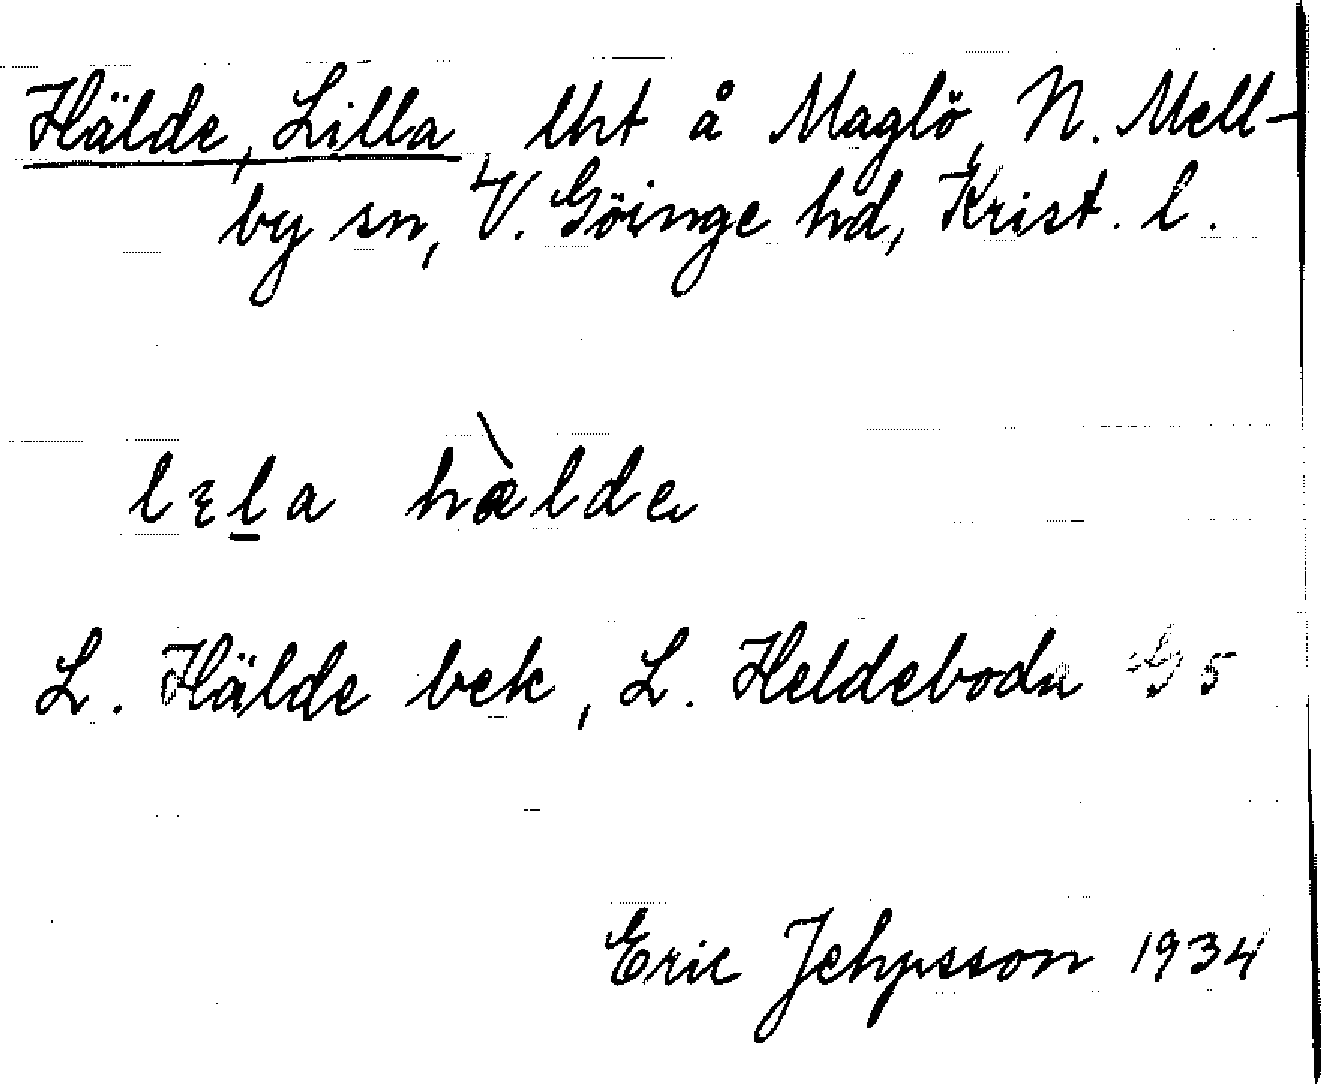 Hälde, Lilla, lht å Maglö, N. Mell-
by sn, V. Göinge hd, Krist. l.
lɛl̲a hæ̀lde
L. Hälde bek, L. Heldeboda G5
Eric Jehpsson 1934